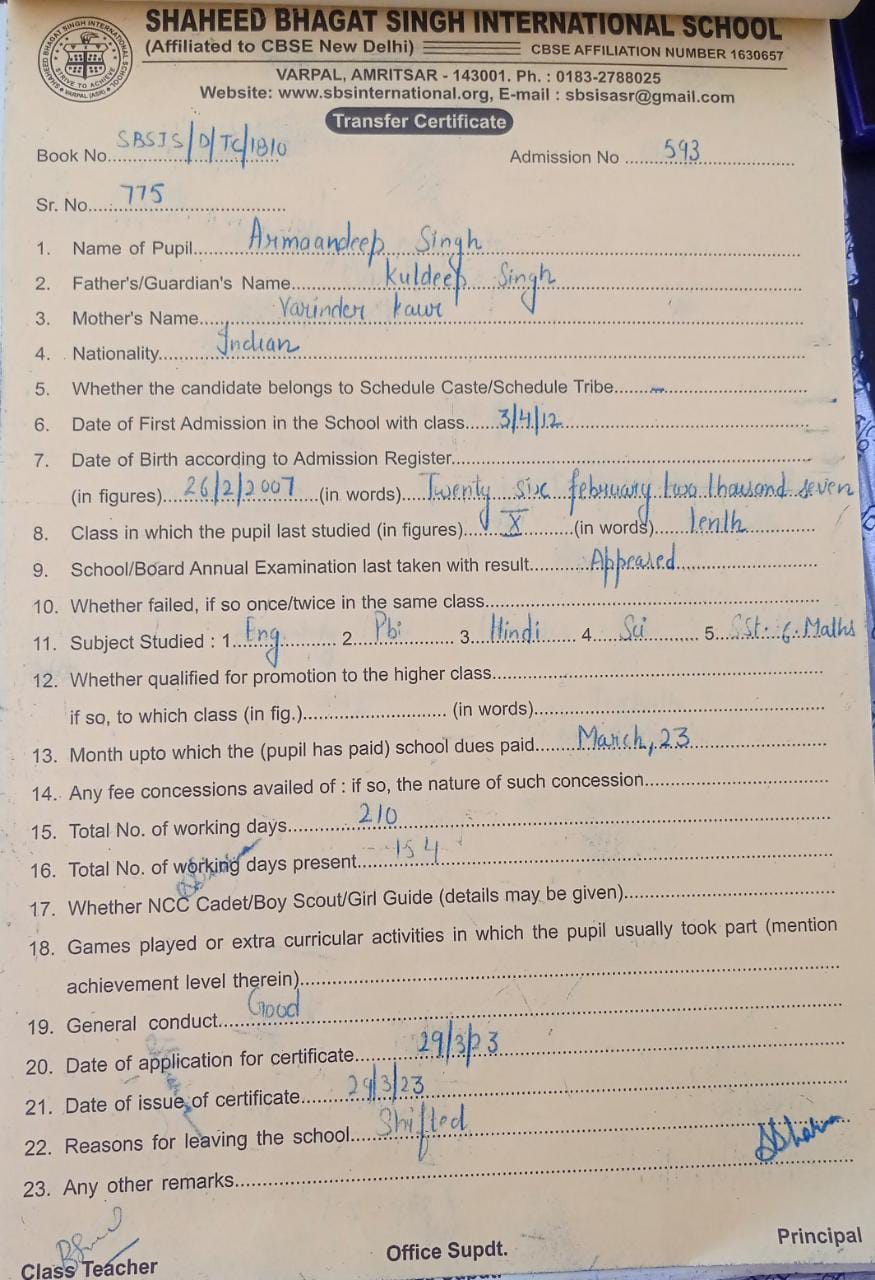 SHAHEED BHAGAT SINGH INTERNATIONAL SCHOOL
(Affiliated to CBSE New Delhi) CBSE AFFILIATION NUMBER 1630657
VARPAL, AMRITSAR - 143001. Ph. : 0183-2788025
Website: www.sbsinternational.org, E-mail : sbsisasr@gmail.com
Transfer Certificate
Book No. SBSIS/D/TC/1810 Admission No 593
Sr. No. 775
1. Name of Pupil Armaandeep Singh
2. Father's/Guardian's Name Kuldeep Singh
3. Mother's Name Varinder kaur
4. Nationality Indian
5. Whether the candidate belongs to Schedule Caste/Schedule Tribe
6. Date of First Admission in the School with class 3/4/12
7. Date of Birth according to Admission Register
(in figures) 26/2/2007 (in words) Twenty six february two thousand seven
8. Class in which the pupil last studied (in figures) X (in words) Tenth
9. School/Board Annual Examination last taken with result Appeared
10. Whether failed, if so once/twice in the same class
11. Subject Studied : 1. Eng 2. Pbi 3. Hindi 4. Sci 5. SSt. 6. Maths
12. Whether qualified for promotion to the higher class
if so, to which class (in fig.) (in words)
13. Month upto which the (pupil has paid) school dues paid March, 23
14. Any fee concessions availed of : if so, the nature of such concession
15. Total No. of working days 210
16. Total No. of working days present 154
17. Whether NCC Cadet/Boy Scout/Girl Guide (details may be given)
18. Games played or extra curricular activities in which the pupil usually took part (mention
achievement level therein)
19. General conduct Good
20. Date of application for certificate 29/3/23
21. Date of issue of certificate 29/3/23
22. Reasons for leaving the school Shifted
23. Any other remarks
Class Teacher Office Supdt. Principal